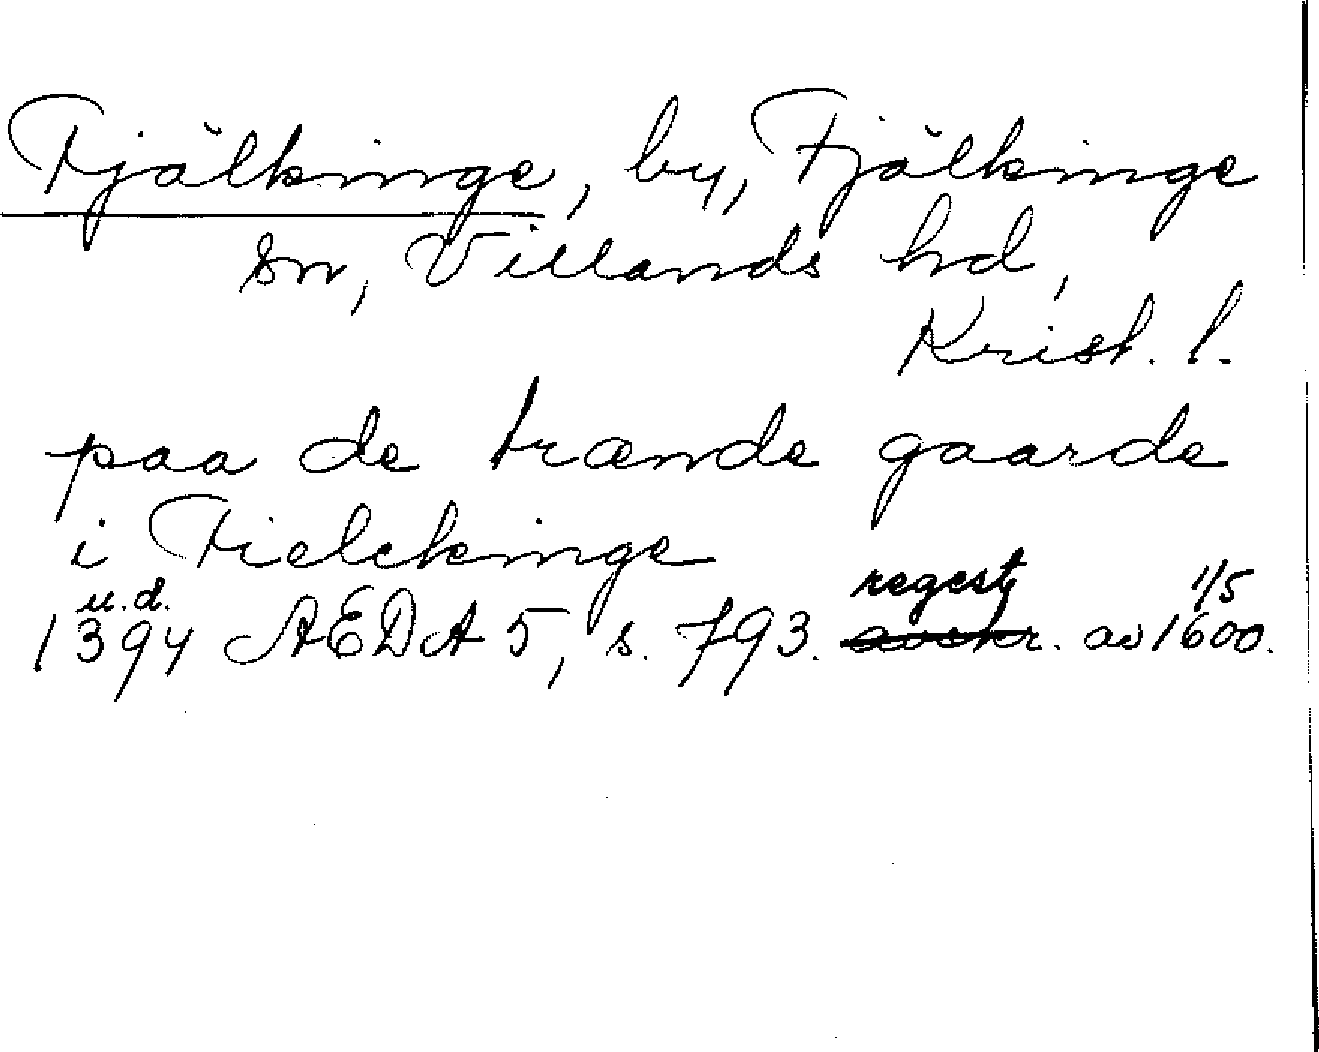 Fjälkinge, by, Fjälkinge
sn, Villands hd,
Krist. l.
paa de trænde gaarde
i Fielckinge
u.d. regest 1/5
1394 AEDA 5, s. 793. avskr. av 1600.